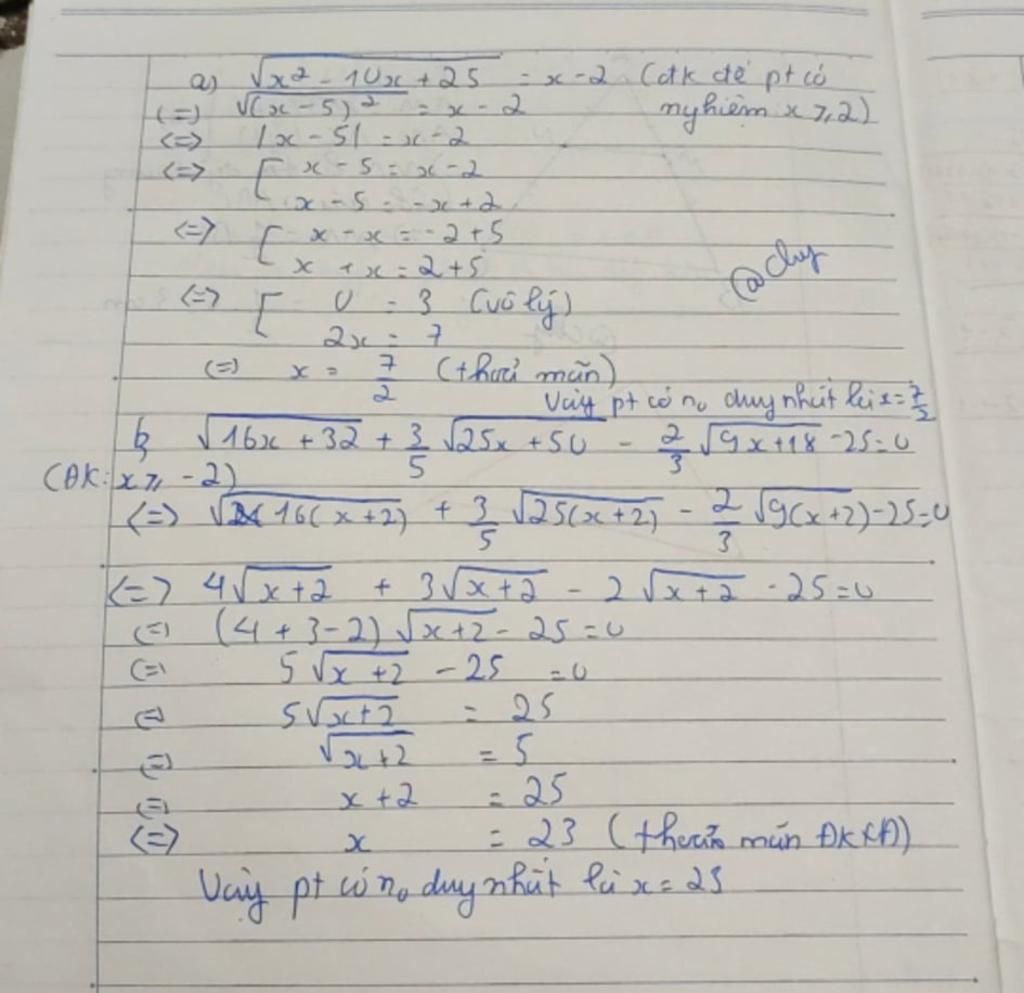 a) √(x² - 10x + 25) = x - 2 (đk để pt có
nghiệm x ⩾ 2)
(=) √((x - 5)²) = x - 2
<=> |x - 5| = x - 2
<=> [ x - 5 = x - 2
x - 5 = -x + 2
<=> [ x - x = -2 + 5
x + x = 2 + 5
@chy
<=> [ 0 = 3 (vô lý)
2x = 7
(=) x = 7/2 (thoả mãn)
Vậy pt có n₀ duy nhất là x = 7/2
b, √(16x + 32) + 3/5 √(25x + 50) - 2/3 √(9x + 18) - 25 = 0
(ĐK: x ⩾ -2)
<=> √(16(x + 2)) + 3/5 √(25(x + 2)) - 2/3 √(9(x + 2)) - 25 = 0
<=> 4√(x + 2) + 3√(x + 2) - 2√(x + 2) - 25 = 0
(=) (4 + 3 - 2)√(x + 2) - 25 = 0
(=) 5√(x + 2) - 25 = 0
(=) 5√(x + 2) = 25
(=) √(x + 2) = 5
(=) x + 2 = 25
<=> x = 23 (thoả mãn ĐKXĐ)
Vậy pt có n₀ duy nhất là x = 23